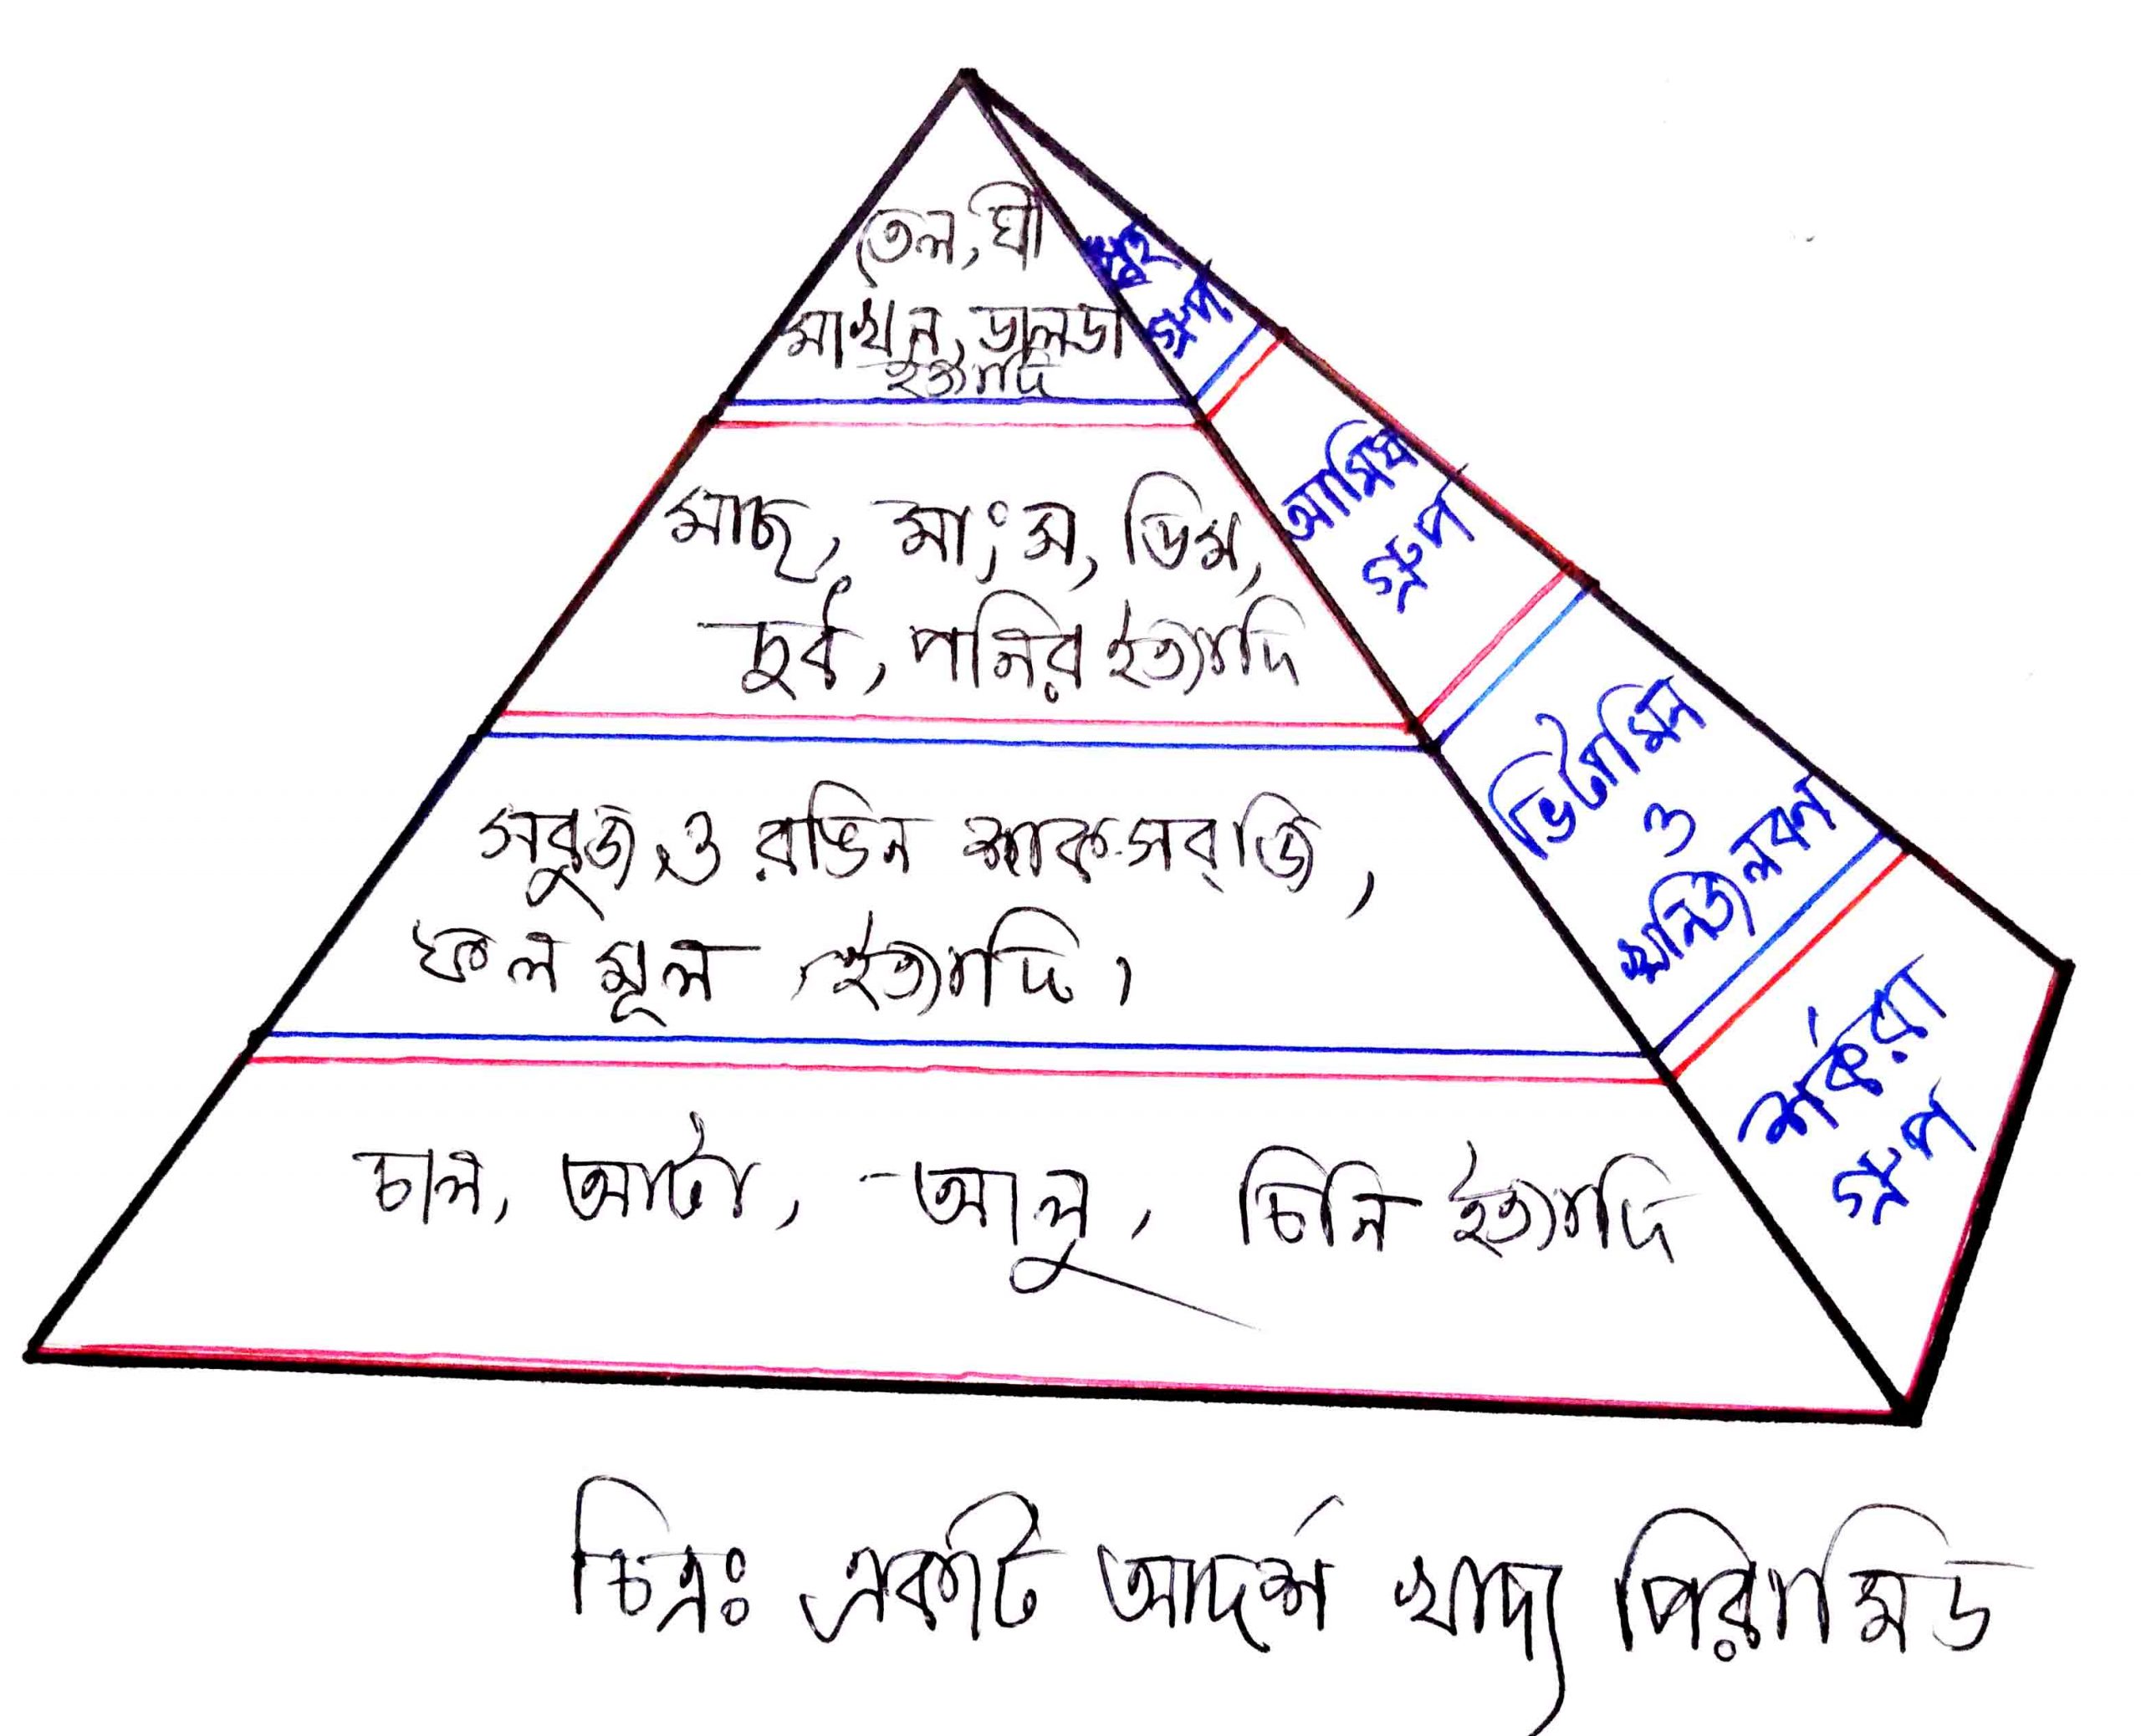 তেল, ঘী
মাখন, ডালডা
ইত্যাদি
স্নেহ
গ্রুপ
মাছ, মাংস, ডিম,
দুধ, পনির ইত্যাদি
আমিষ
গ্রুপ
সবুজ ও রঙিন শাক-সব্জি,
ফল মূল ইত্যাদি।
ভিটামিন
ও
খনিজ লবণ
চাল, আটা, আলু, চিনি ইত্যাদি
শর্করা
গ্রুপ
চিত্রঃ একটি আদর্শ খাদ্য পিরামিড